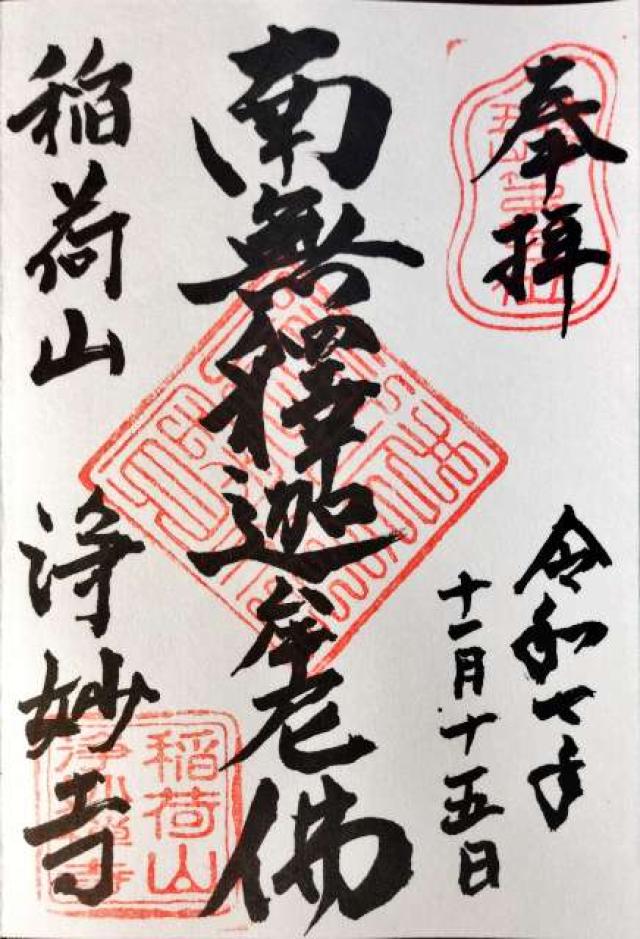 奉拝
令和七年
十一月十五日
南無釋迦牟尼佛
稲荷山 浄妙寺
稲荷山
浄妙禅寺